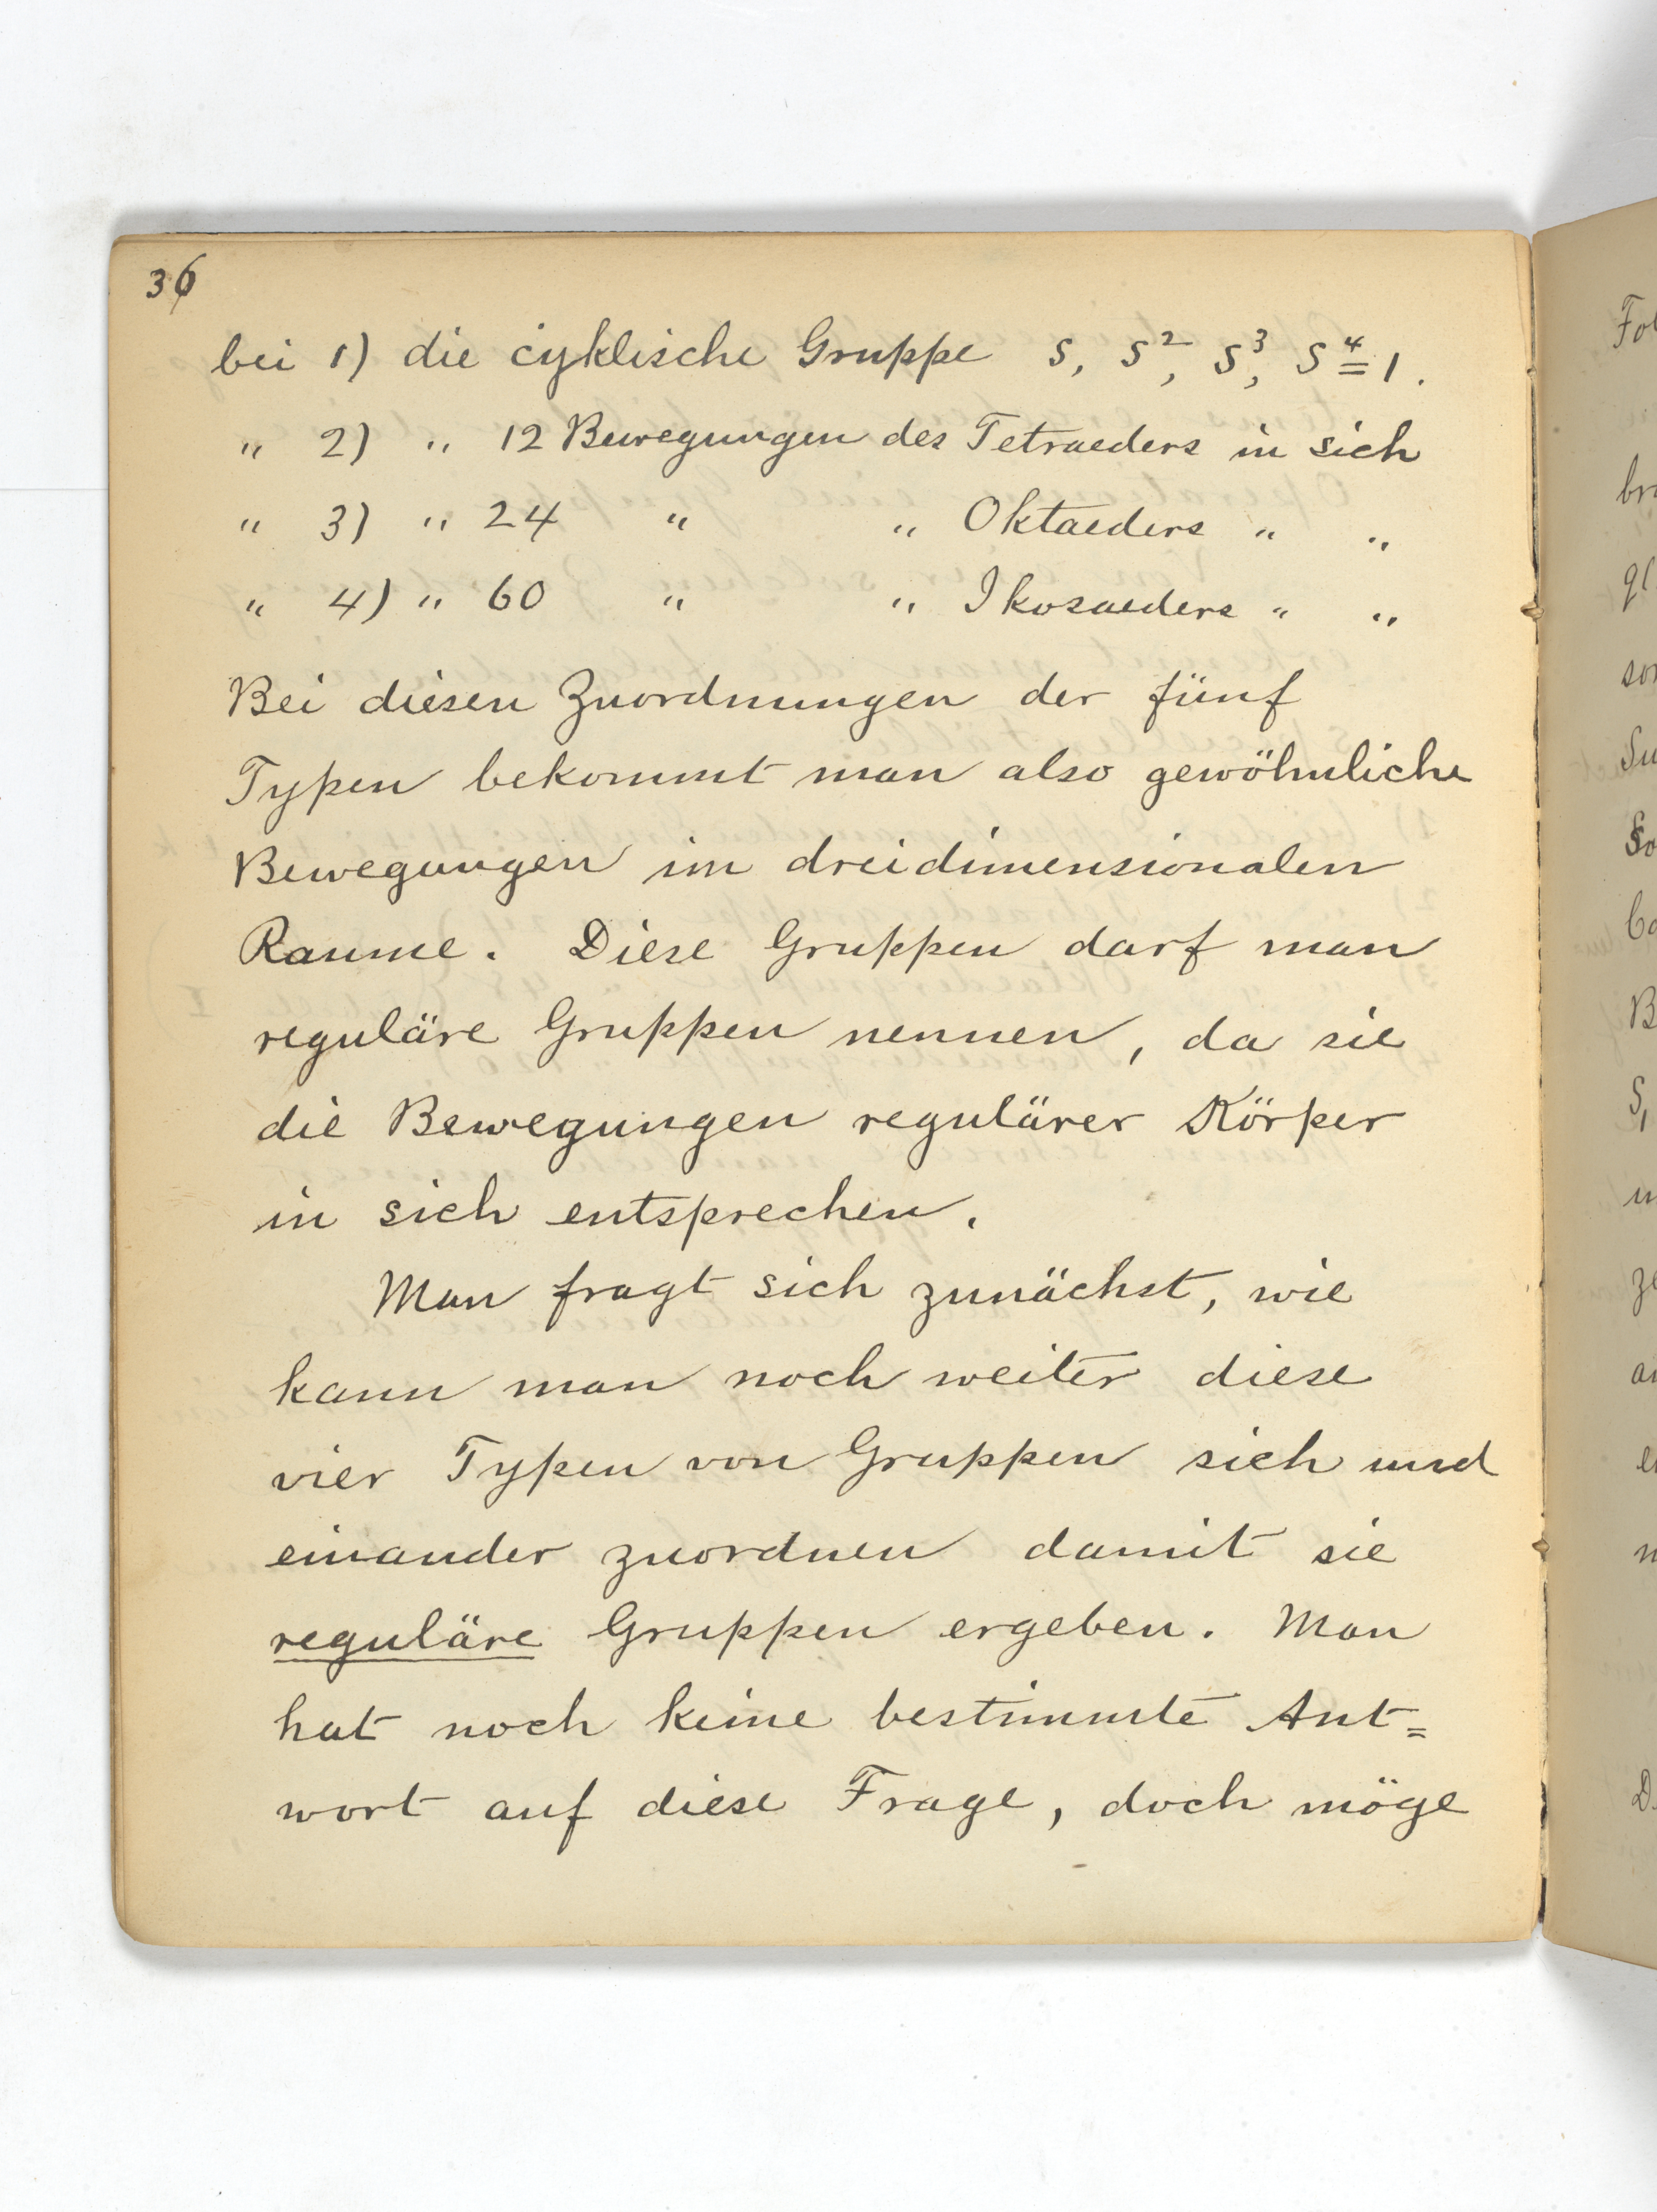 36
bei 1) die cyklische Gruppe S, S², S³, S⁴ = 1.
" 2) " 12 Bewegungen des Tetraeders in sich
" 3) " 24 " " Oktaeders " "
" 4) " 60 " " Ikosaeders " "
Bei diesen Zuordnungen der fünf
Typen bekommt man also gewöhnliche
Bewegungen im dreidimensionalen
Raume. Diese Gruppen darf man
reguläre Gruppen nennen, da sie
die Bewegungen regulärer Körper
in sich entsprechen.
Man fragt sich zunächst, wie
kann man noch weiter diese
vier Typen von Gruppen sich und
einander zuordnen damit sie
reguläre Gruppen ergeben. Man
hat noch keine bestimmte Ant=
wort auf diese Frage, doch möge